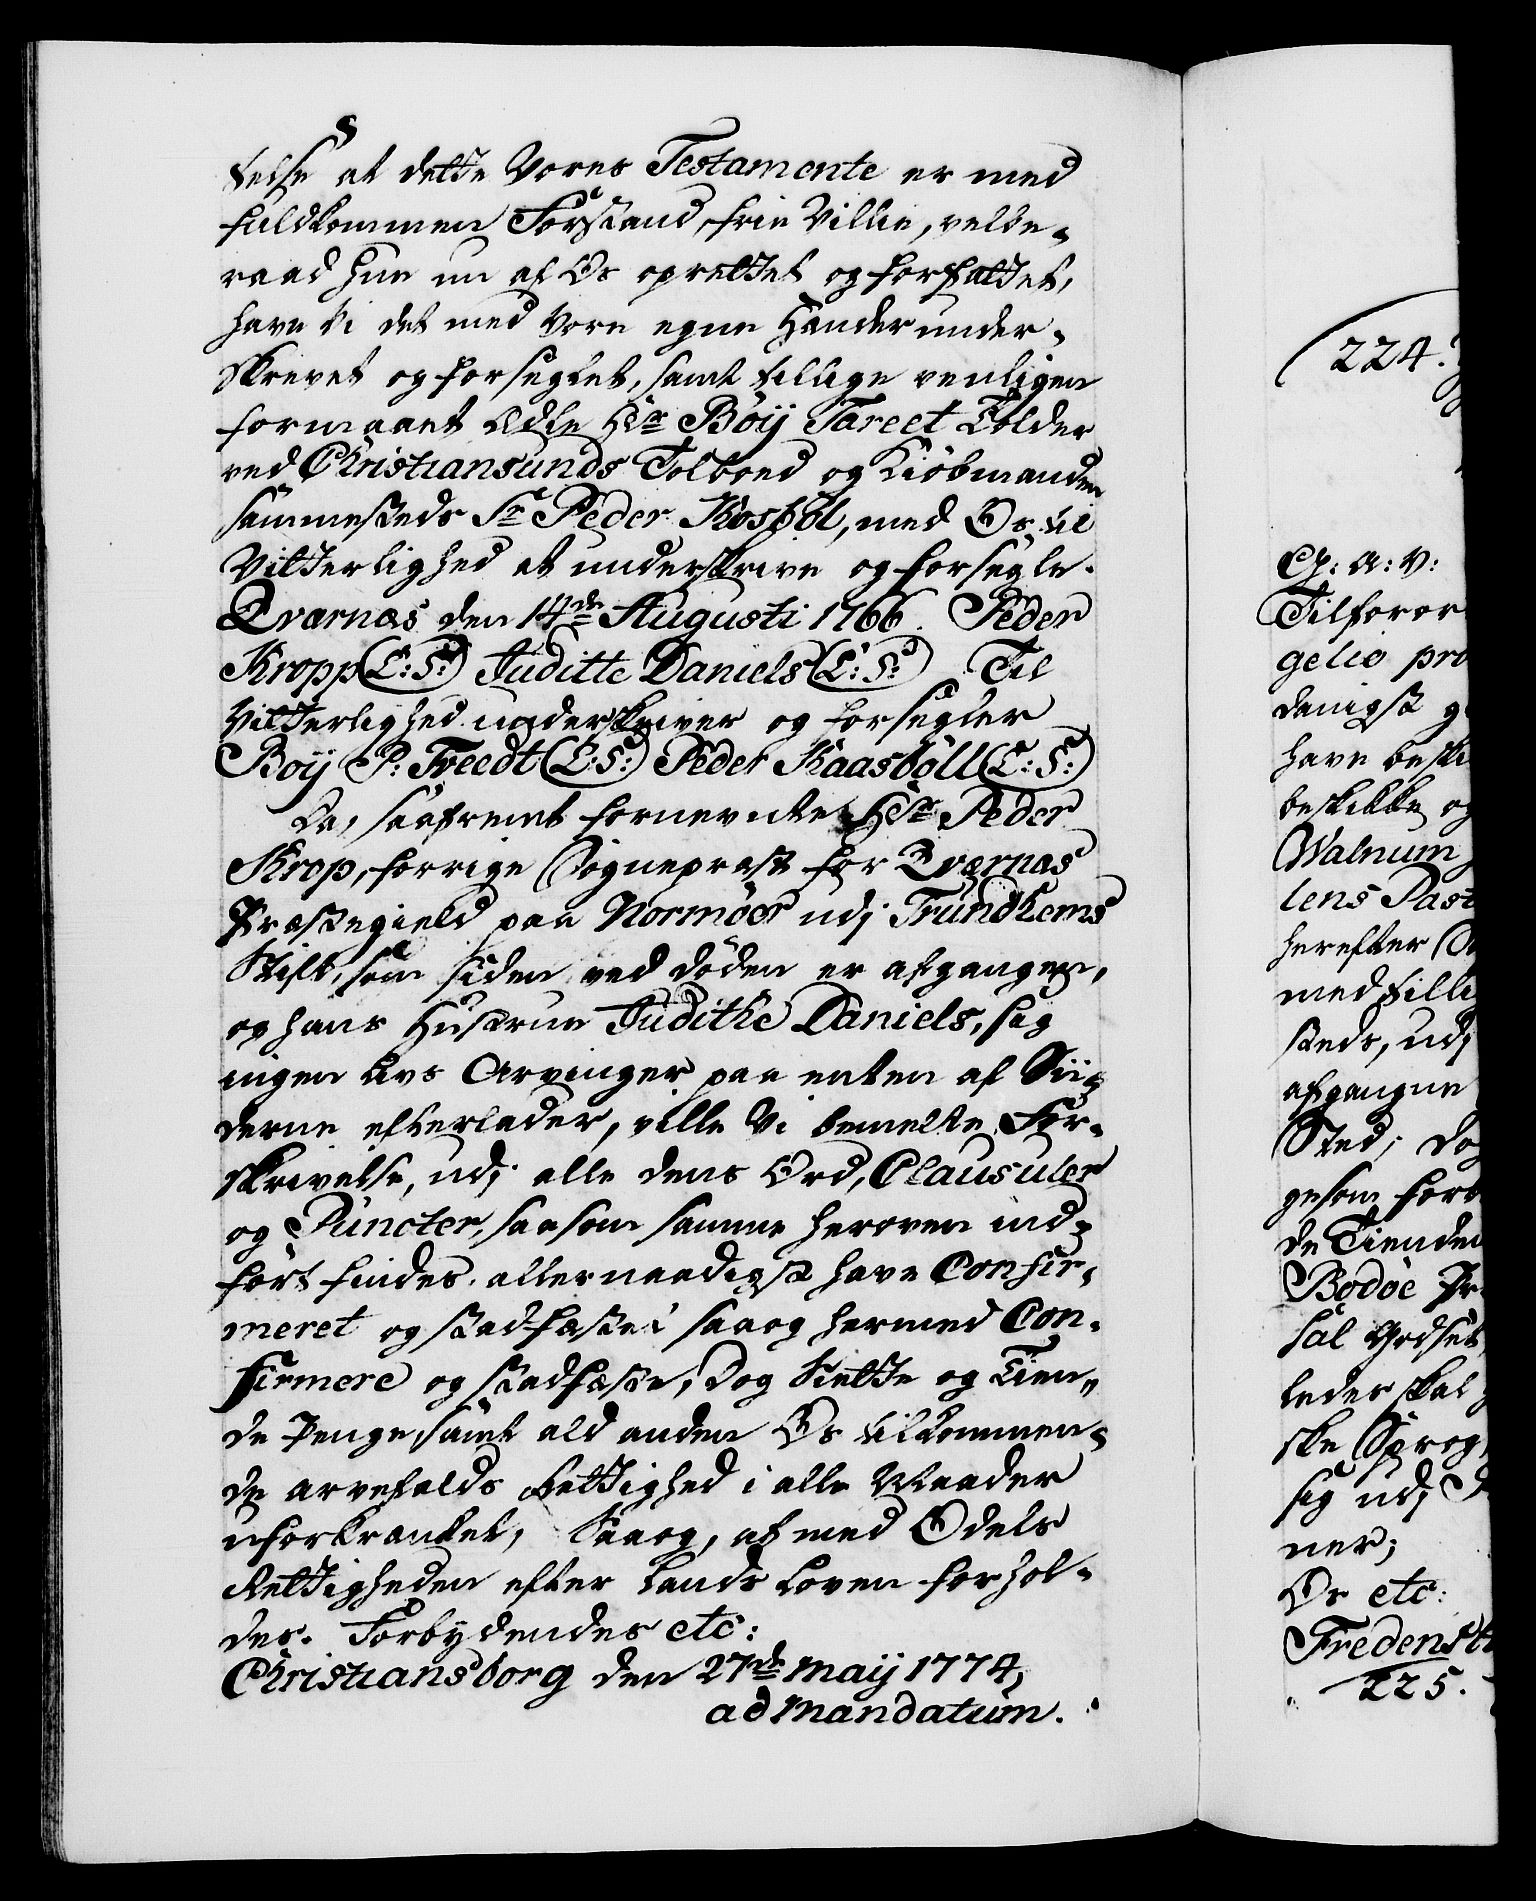 telse at dette Vores Testamente er med
fuldkommen Forstand, frie Villie, velbe-
raad Hue nu af Os oprettet og forfattet,
have Vi det med Vore egne Hænder under-
skrevet og forseglet, samt tillige venligen
formaaet Ædle Hr Böij Tareet Tolder
ved Christiansunds Toldboed og Kiöbmanden
sammesteds Sr Peder Kosböl, med Os til
Vitterlighed at underskrive og forsegle.
Qværnæs den 14de Augusti 1766. Peder
Kropp (L:S:) Juditte Daniels (L:S:) Til
Vitterlighed underskriver og forsegler
Boij P: Treedt (L:S:) Peder Kaasböll (L:S:)
Da, saafremt fornevnte Hr Peder
Krop, forrige Sognepræst for Qværnæs
Præstegield paa Normöer udj Trundhems
Stift, som siden ved döden er afgangen,
og hans Hustrue Judithe Daniels, sig
ingen Livs Arvinger paa enten af Sii-
derne efterlader, ville Vi bemelte For-
skrivelse, udj alle dens Ord, Clausuler
og Puncter, saasom samme heroven ind-
fört findes, allernaadigst have Confir-
meret og stadfæstet, saaog hermed Con-
firmere og stadfæste; Dog Siette og Tien-
de Penge, samt ald anden Os tilkommen-
de arvefalds Rettighed i alle Maader
uforkrænket, Saaog, at med Odels
Rettigheden efter Lands Loven forhol-
des. Forbydendes etc:
Christiansborg den 27de Maij 1774,
ad Mandatum.
224.
C: a: v:
Tilforor
gelio pro
danigst g
have beski
beskikke og
Walnum
lens Past
herefter
med tilli
steds, udj
afgangne
Sted; dog
gesom for
de Tienden
Bodöe Pr
sal Godset
leder skal
ske Sprog
sig udj D
ner;
Os etc:
Fredensb
225.